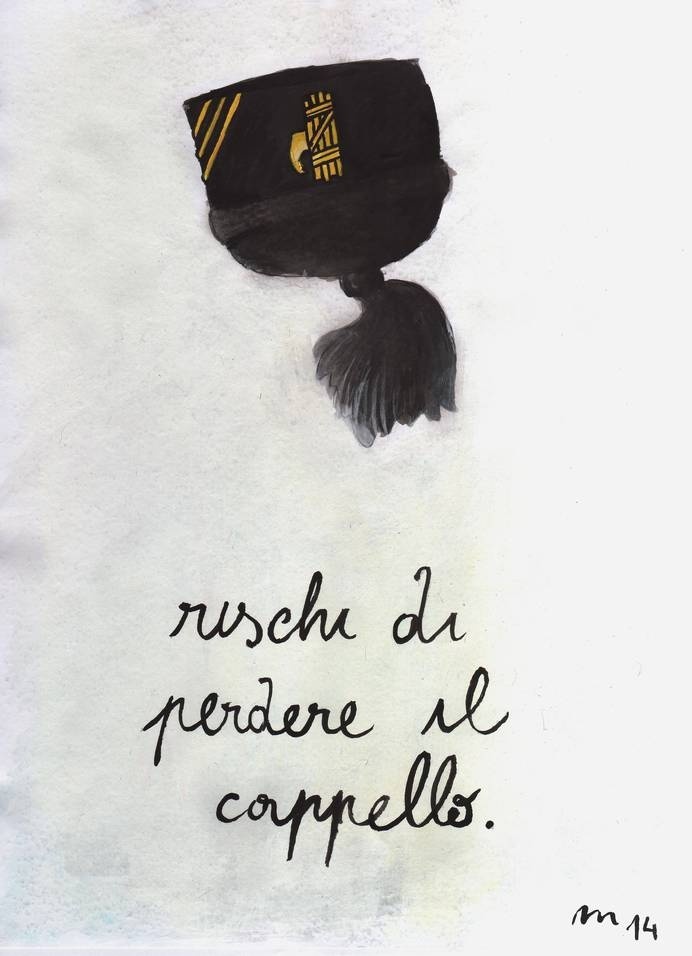 rischi di
perdere il
cappello.
m 14